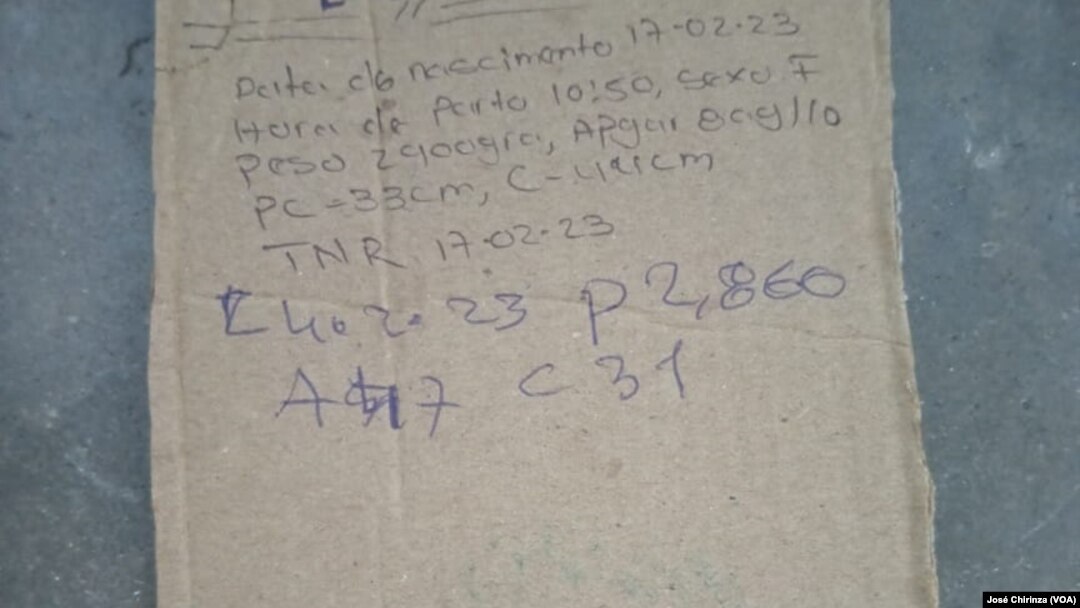 Data de nascimento 17-02-23
Hora de Parto 10:50, sexo F
Peso 2900gra, Apgar 8a9/10
PC=33cm, C-49cm
TNR 17-02-23
24.2.23 p 2,860
A 47 C 31
José Chirinza (VOA)